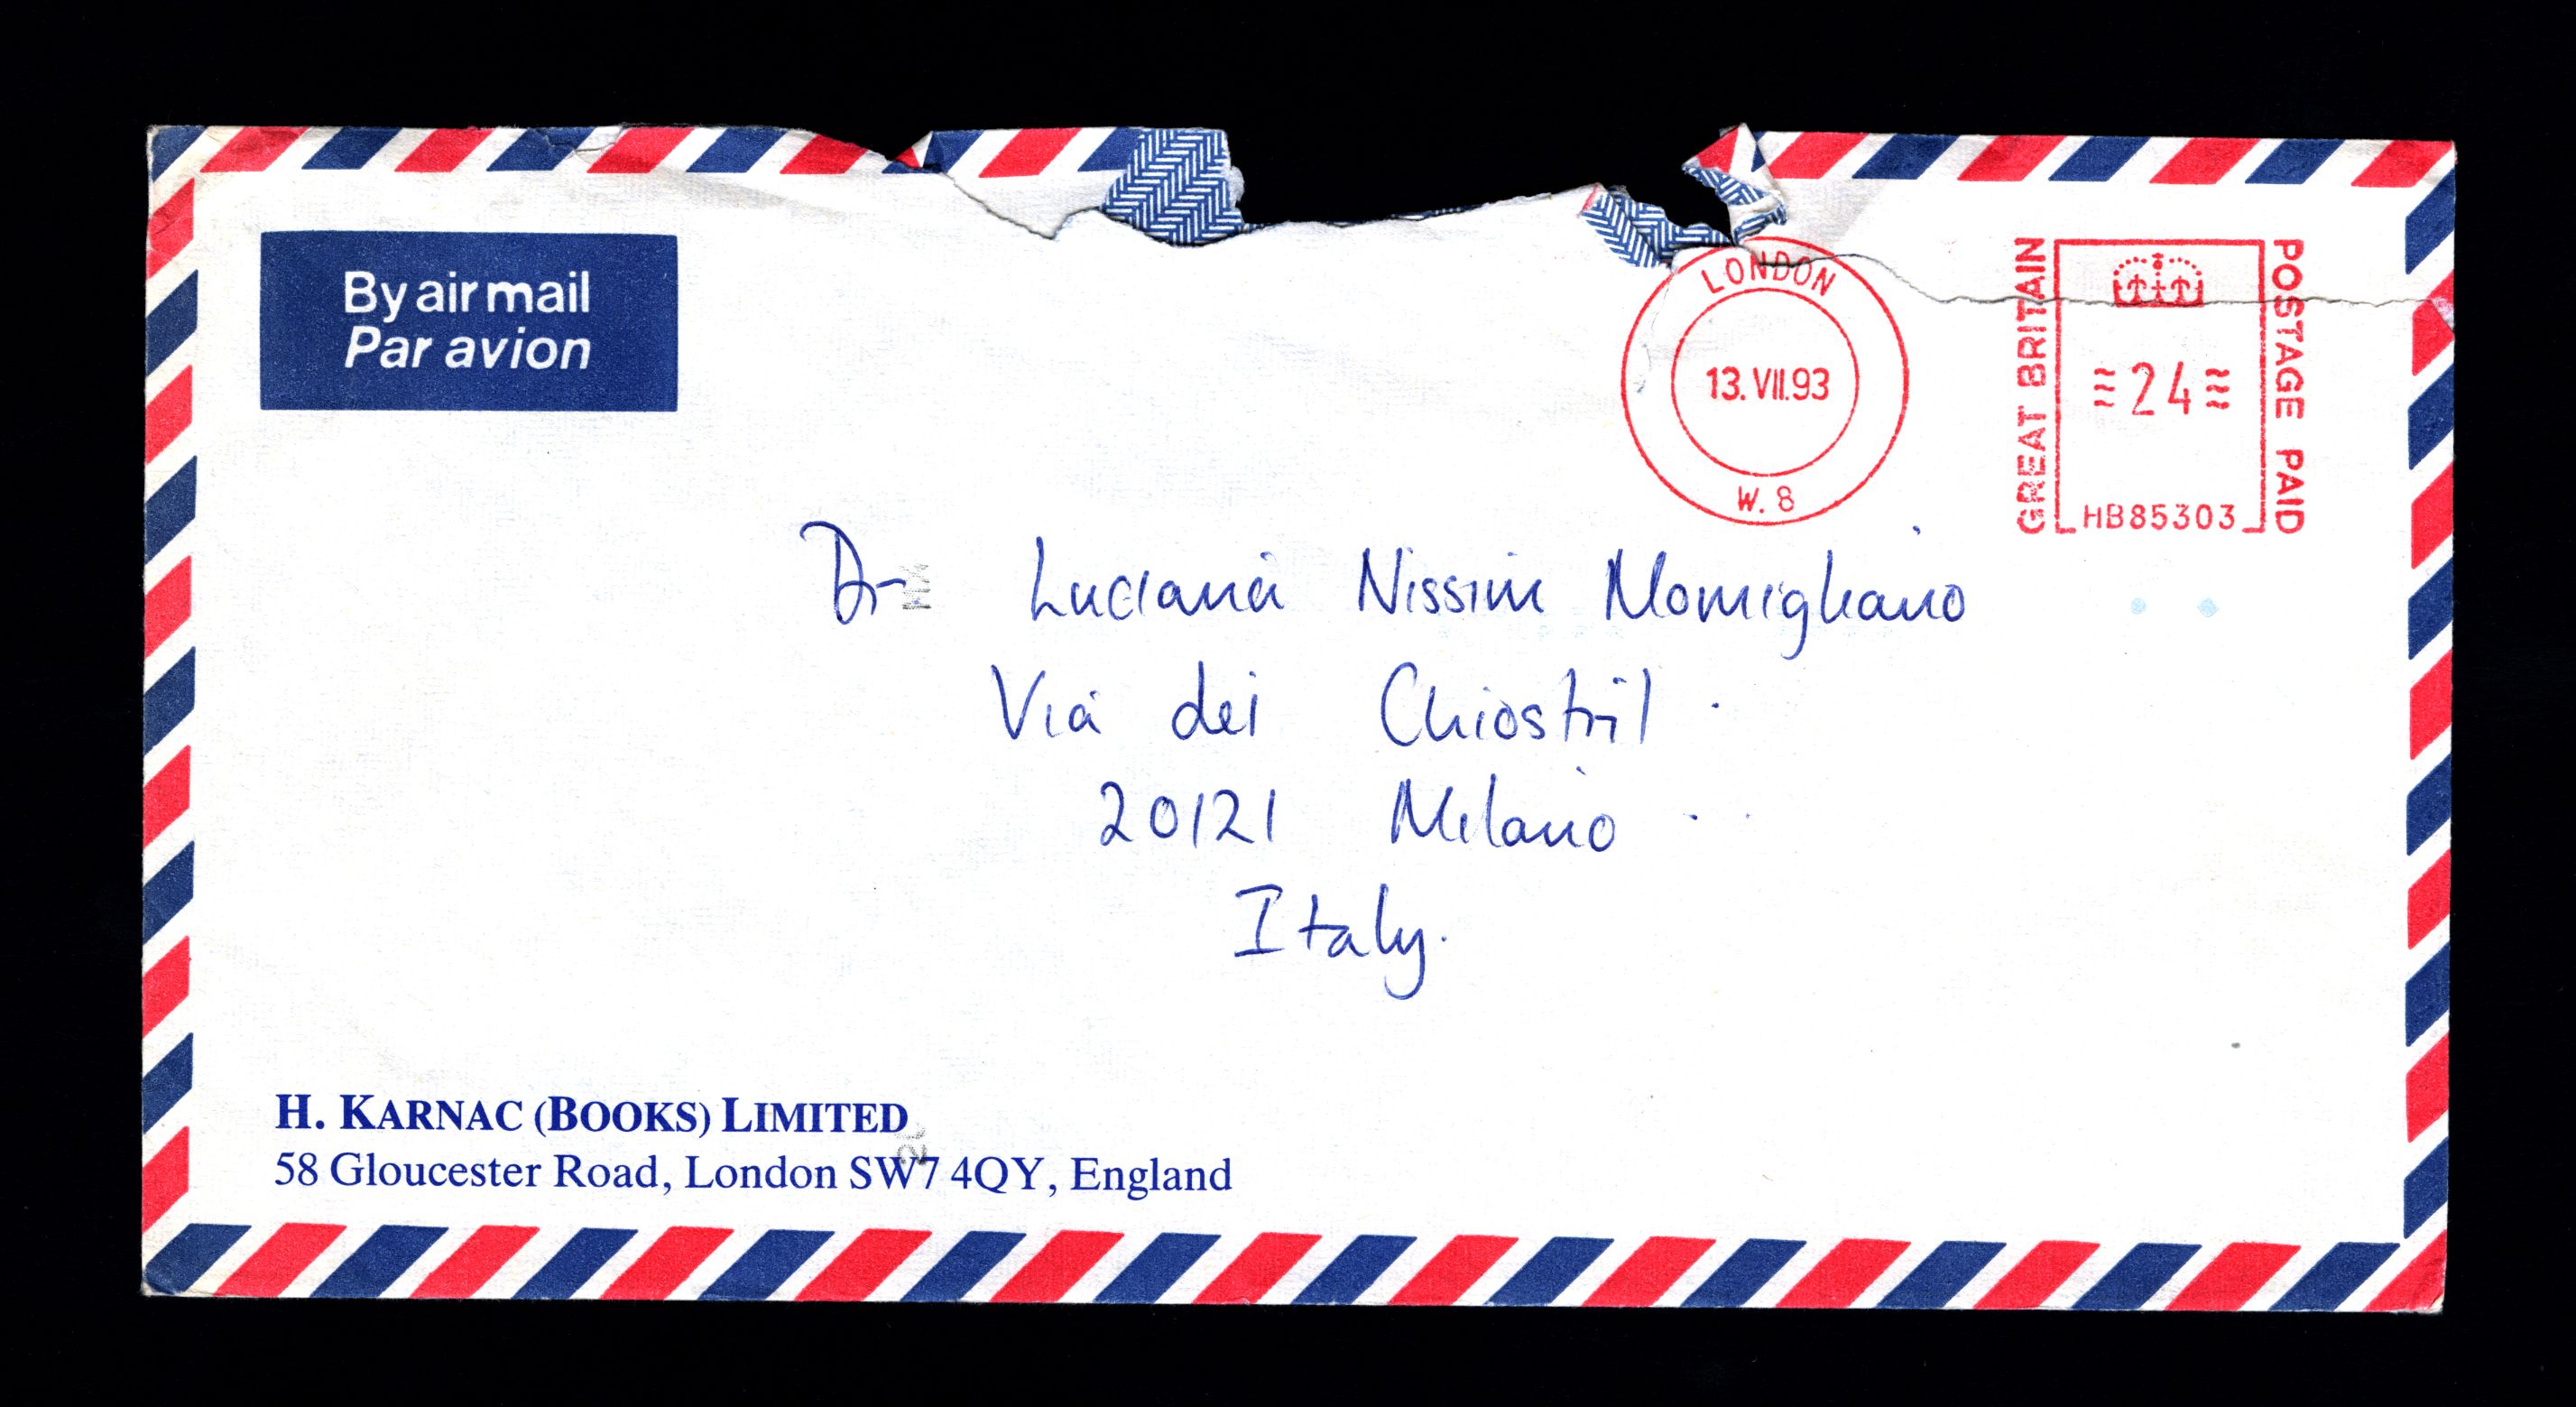 By air mail
Par avion
LONDON
13.VII.93
W. 8
GREAT BRITAIN
24
HB85303
POSTAGE PAID
Dr Luciana Nissim Momigliano
Via dei Chiostri 1
20121 Milano
Italy.
H. KARNAC (BOOKS) LIMITED
58 Gloucester Road, London SW7 4QY, England